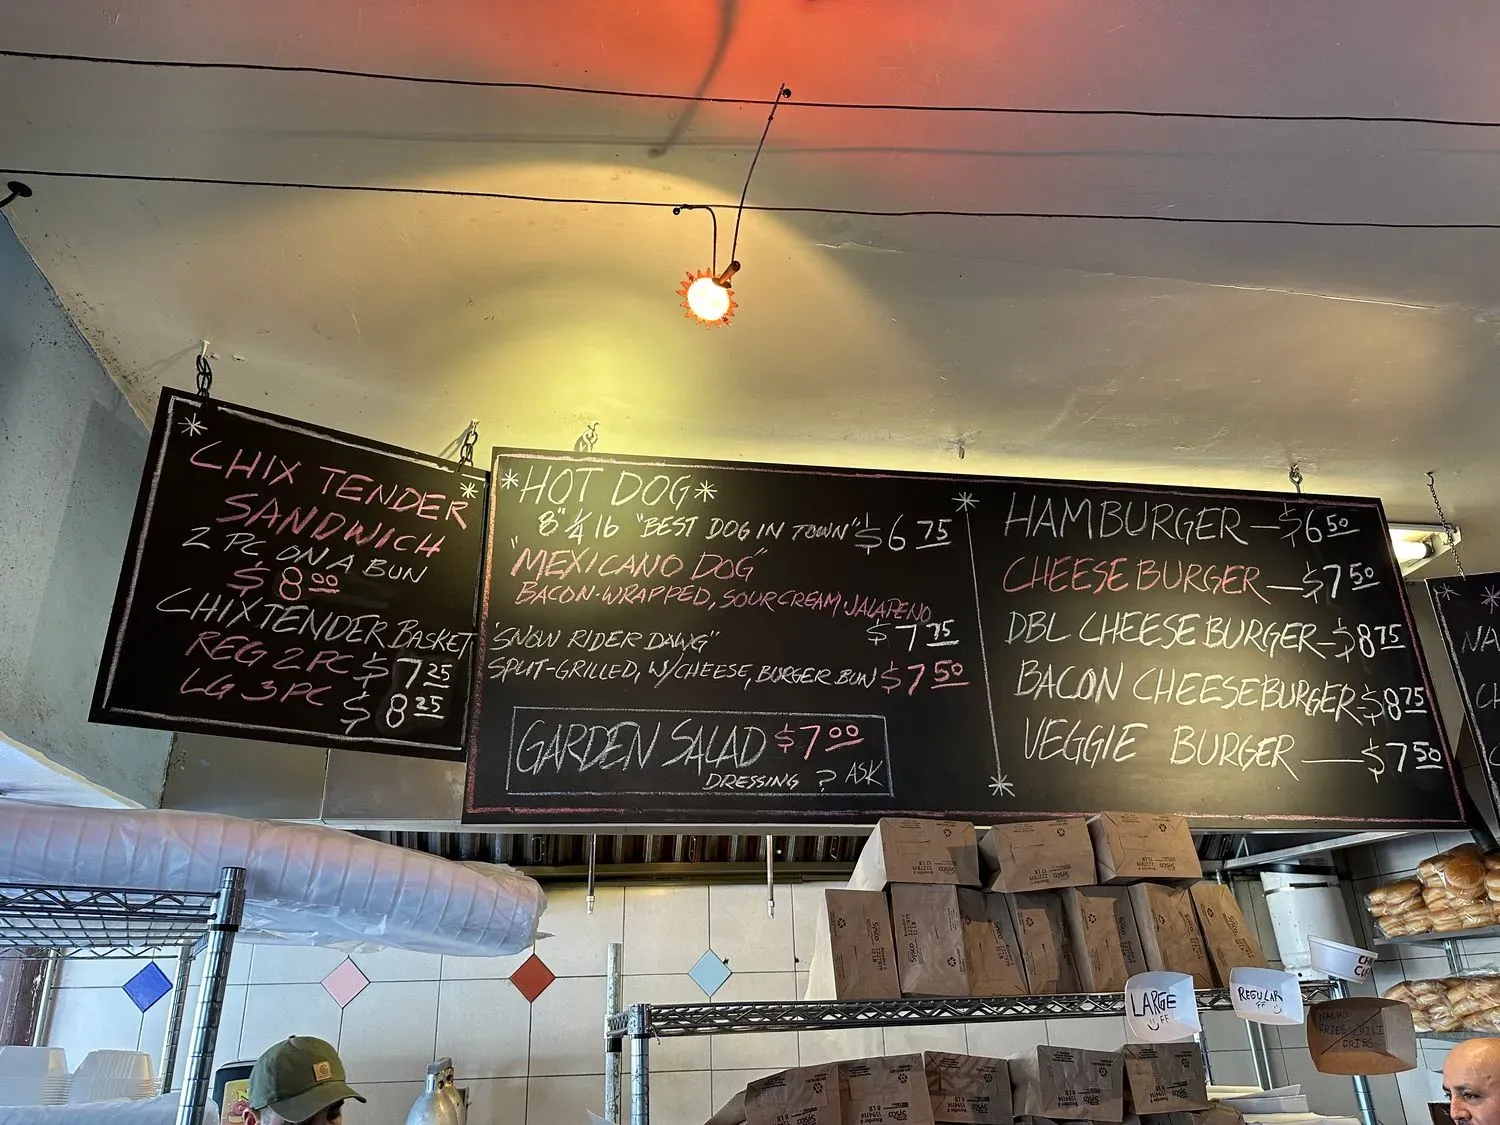 CHIX TENDER
SANDWICH
2 PC ON A BUN
$ 8.00
CHIX TENDER BASKET
REG 2 PC $ 7.25
LG 3 PC $ 8.25
*HOT DOG*
8" 1/4 lb "BEST DOG IN TOWN" $6.75
"MEXICANO DOG"
BACON-WRAPPED, SOUR CREAM·JALAPENO
$ 7.75
"SNOW RIDER DAWG"
SPLIT-GRILLED, W/CHEESE, BURGER BUN $7.50
GARDEN SALAD $7.00
DRESSING ? ASK
HAMBURGER—$6.50
CHEESE BURGER—$7.50
DBL CHEESE BURGER—$8.75
BACON CHEESEBURGER-$8.75
VEGGIE BURGER—$7.50
NA
CH
LARGE
FF
REGULAR
FF
NACHO
FRIES CHILI
FRIES
Sysco